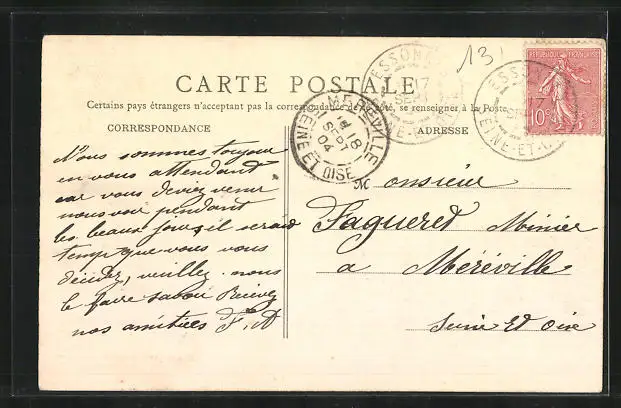 13
CARTE POSTALE
Certains pays étrangers n'acceptent pas la correspondance de ce côté, se renseigner à la Poste
CORRESPONDANCE
ADRESSE
REPUBLIQUE FRANÇAISE
10c
ESSONNES
17
SEINE-ET-OISE
MEREVILLE
18
SEPT
04
SEINE ET OISE
Nous sommes toujours
en vous attendant
car vous deviez venir
nous voir pendant
les beaux jours il serait
temps que vous vous
décidez, veuillez nous
le faire savoir Recevez
nos amitiées F. A
Monsieur
Fagueret Minier
a Méréville
Seine Et Oise